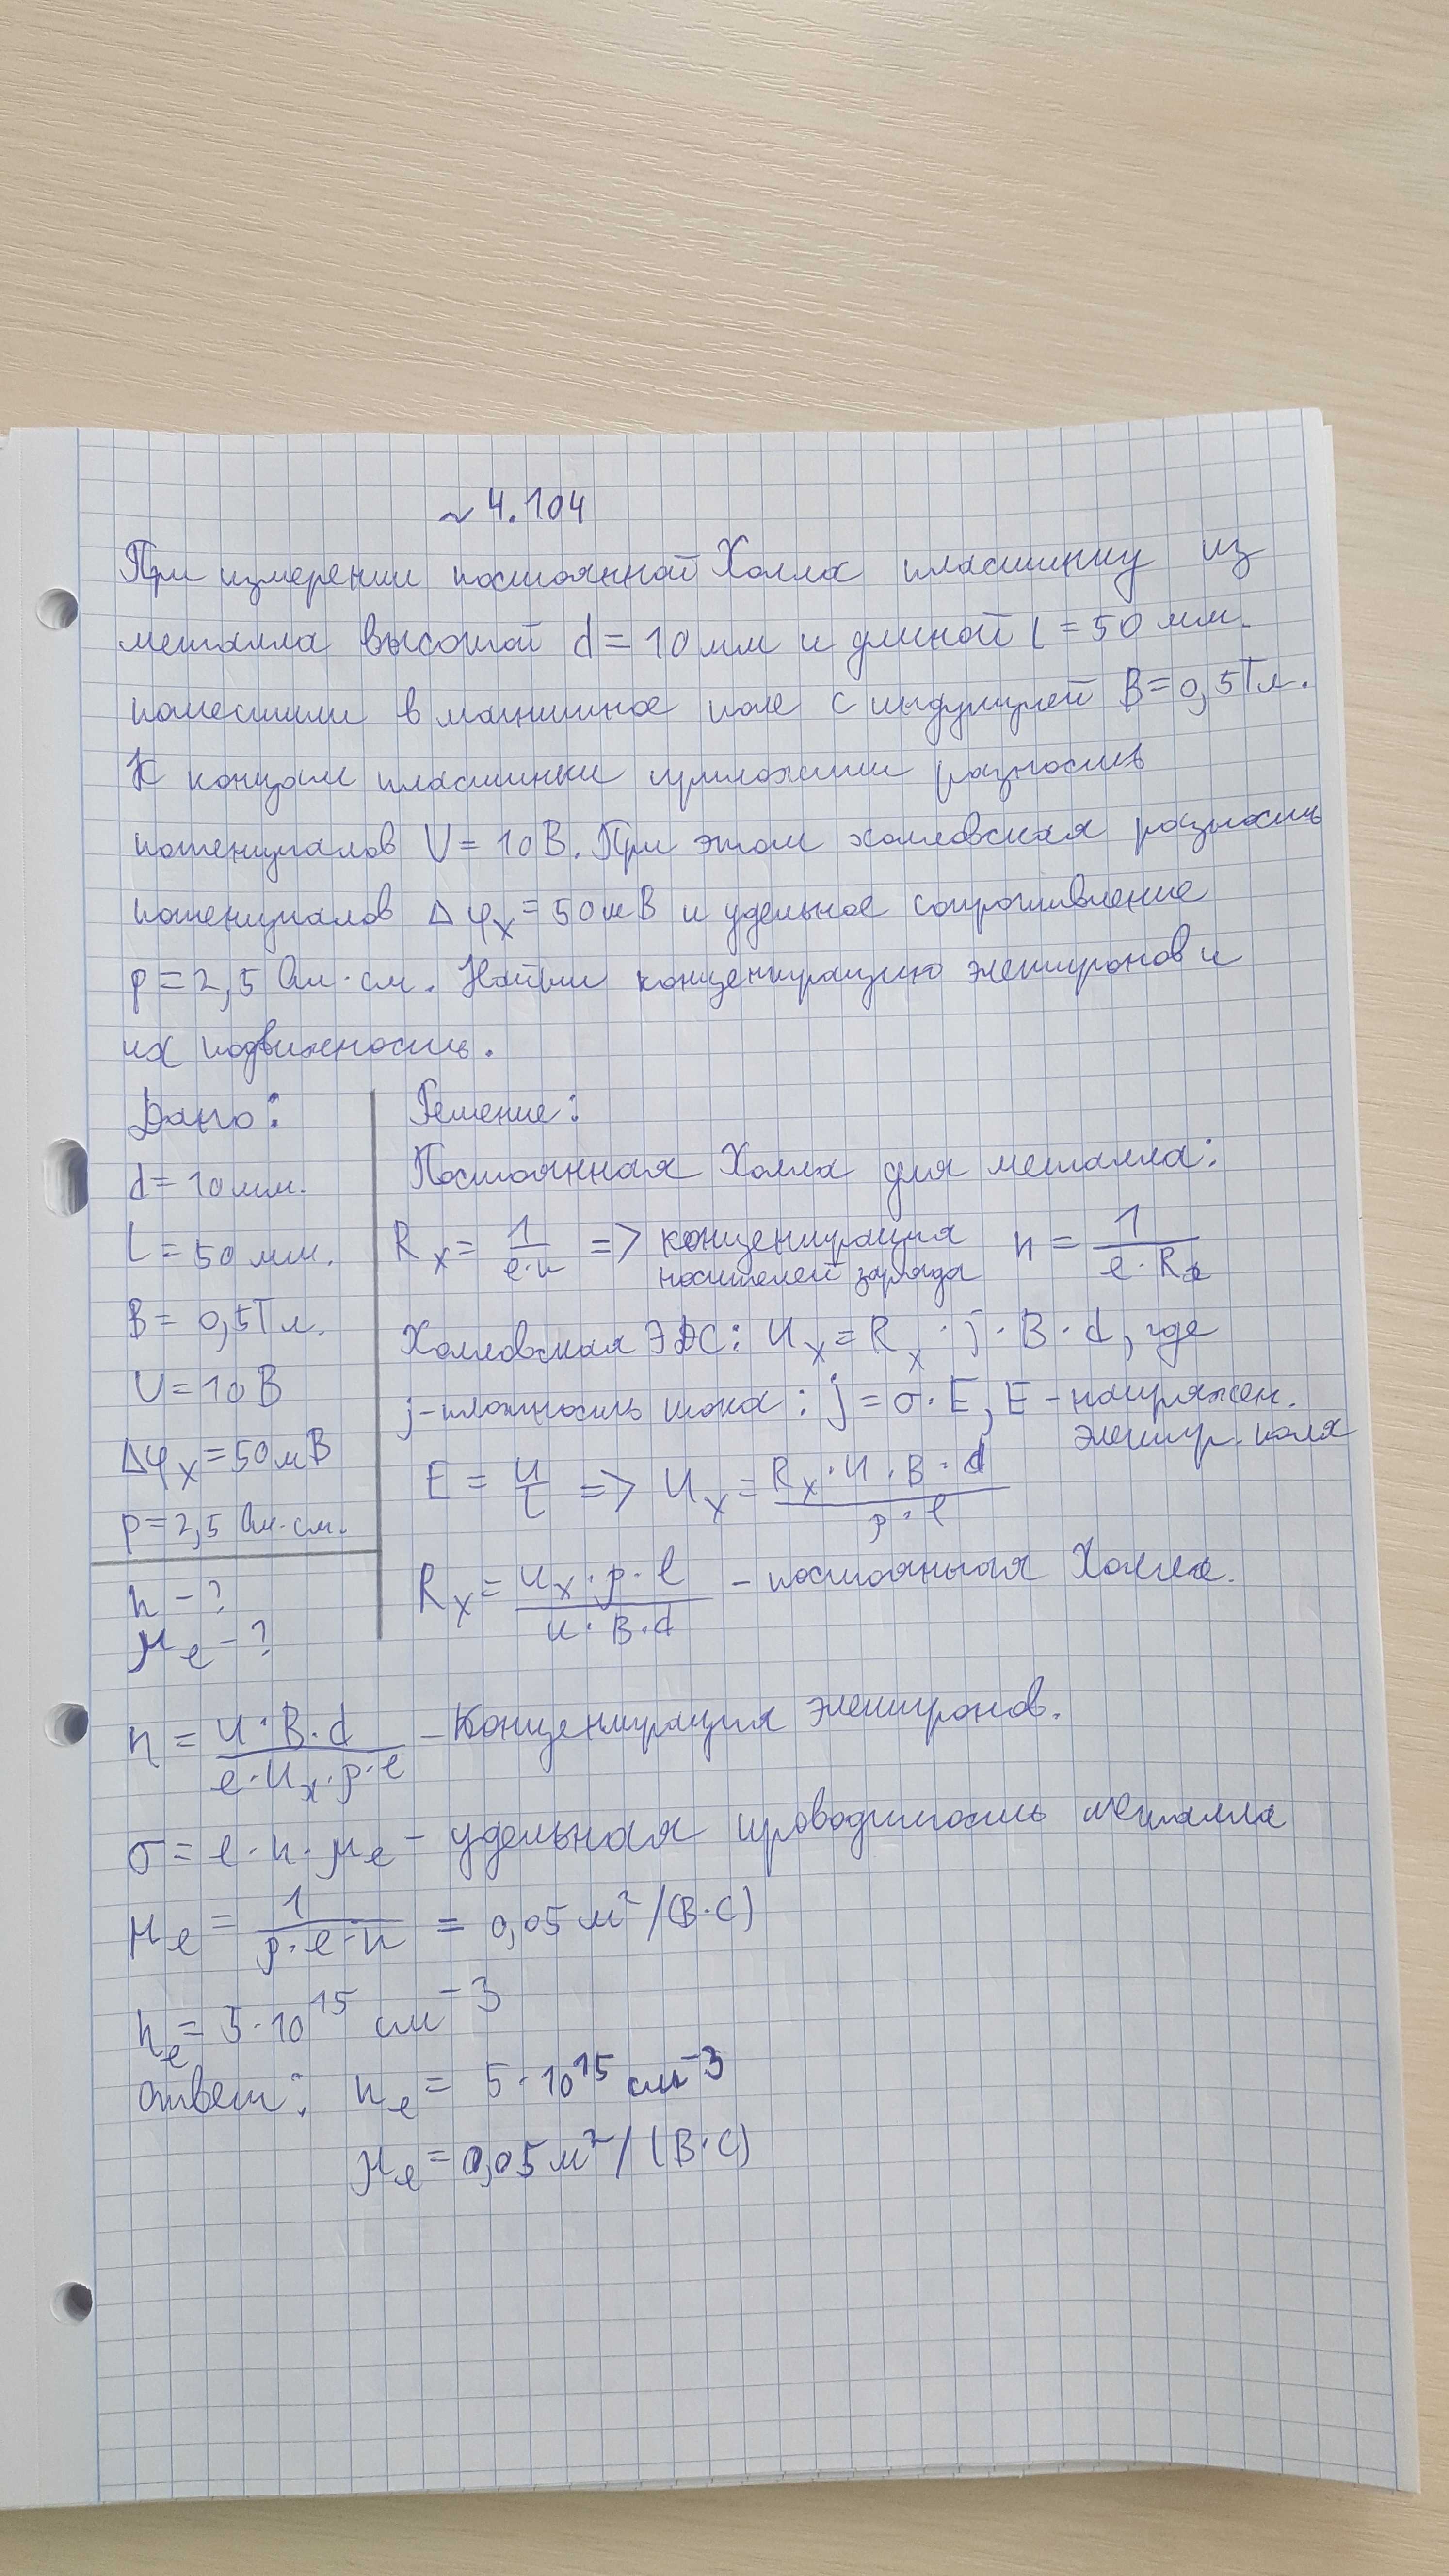 ~ 4.104
При измерении постоянной Холла пластинку из
металла высотой d = 10 мм и длиной l = 50 мм.
поместили в магнитное поле с индукцией B = 0,5 Тл.
К концам пластинки приложили разность
потенциалов U = 10 В. При этом холловская разность
потенциалов Δφₓ = 50 мВ и удельное сопротивление
ρ = 2,5 Ом·см. Найти концентрацию электронов и
их подвижность.
Дано:
d = 10 мм.
l = 50 мм.
B = 0,5 Тл.
U = 10 В
Δφₓ = 50 мВ
ρ = 2,5 Ом·см.
n - ?
μₑ - ?
Решение:
Постоянная Холла для металла:
Rₓ = 1/(e·n) => концентрация носителей заряда n = 1/(e·Rₓ)
Холловская ЭДС: Uₓ = Rₓ · j · B · d, где
j - плотность тока: j = σ·E, E - напряжен.
электр. поля
E = U/l => Uₓ = (Rₓ·U·B·d)/(ρ·l)
Rₓ = (Uₓ·ρ·l)/(U·B·d) - постоянная Холла.
n = (U·B·d)/(e·Uₓ·ρ·l) - Концентрация электронов.
σ = e·n·μₑ - удельная проводимость металла
μₑ = 1/(ρ·e·n) = 0,05 м²/(В·с)
nₑ = 5·10¹⁵ см⁻³
ответ: nₑ = 5·10¹⁵ см⁻³
μₑ = 0,05 м²/(В·с)